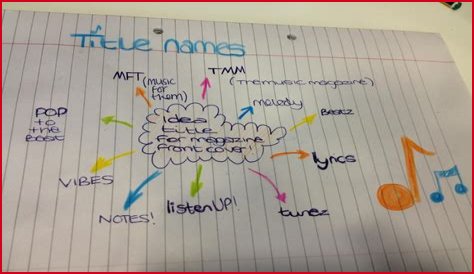 Title names
MFT (music
for
them)
TMM
(The music magazine)
melody
Beatz
lyrics
tunez
listenUP!
NOTES!
VIBES
POP
to
the
Beat
idea
title
for magazine
front cover!